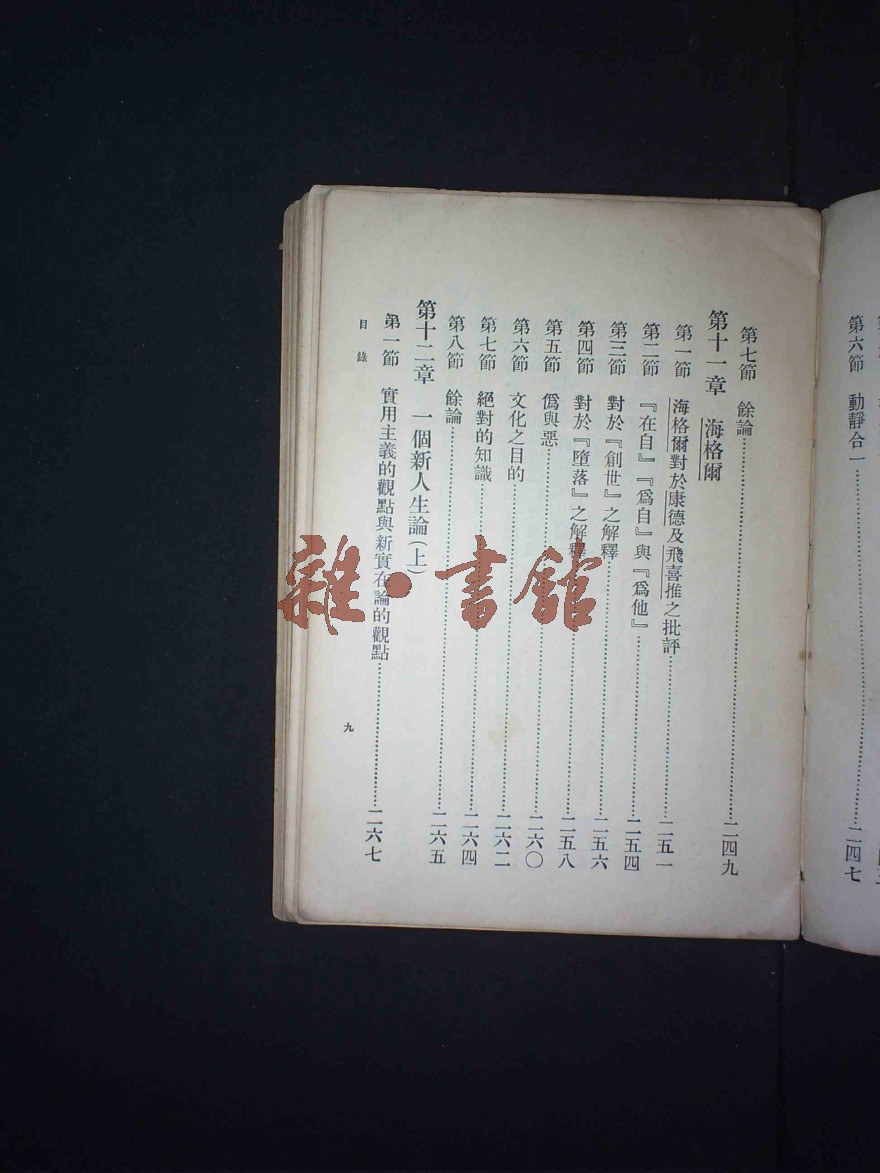 第六節　動靜合一……二四七
第七節　餘論……二四九
第十一章　海格爾
第一節　海格爾對於康德及飛喜推之批評……二五一
第二節　『在自』『爲自』與『爲他』……二五四
第三節　對於『創世』之解釋……二五六
第四節　對於『墮落』之解釋……二五八
第五節　僞與惡……二六〇
第六節　文化之目的……二六二
第七節　絕對的知識……二六四
第八節　餘論……二六五
第十二章　一個新人生論(上)
第一節　實用主義的觀點與新實在論的觀點……二六七
目錄
九
雜·書館